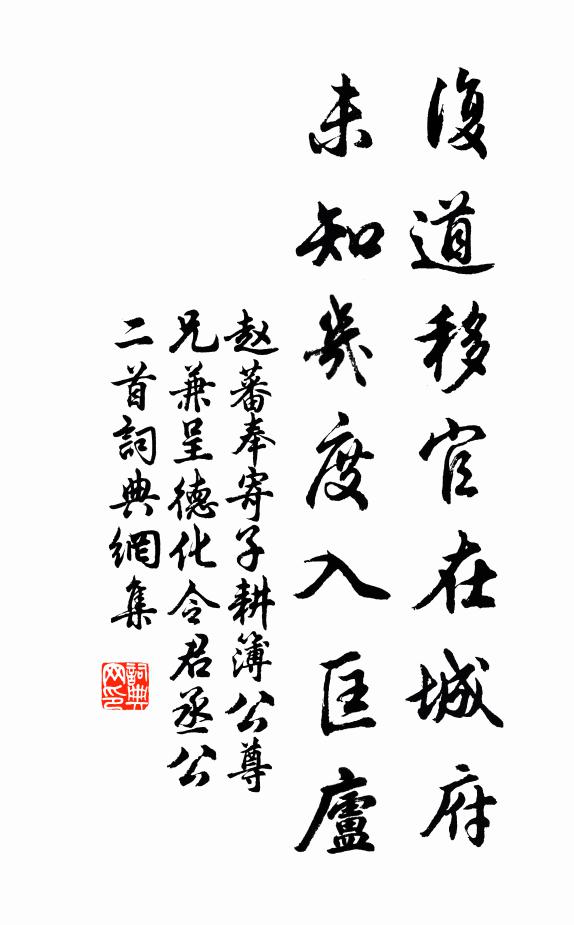 復道移官在城府
未知幾度入匡廬
赵蕃奉寄子耕簿公尊
兄兼呈德化令君丞公
二首詞典網集
詞典网印